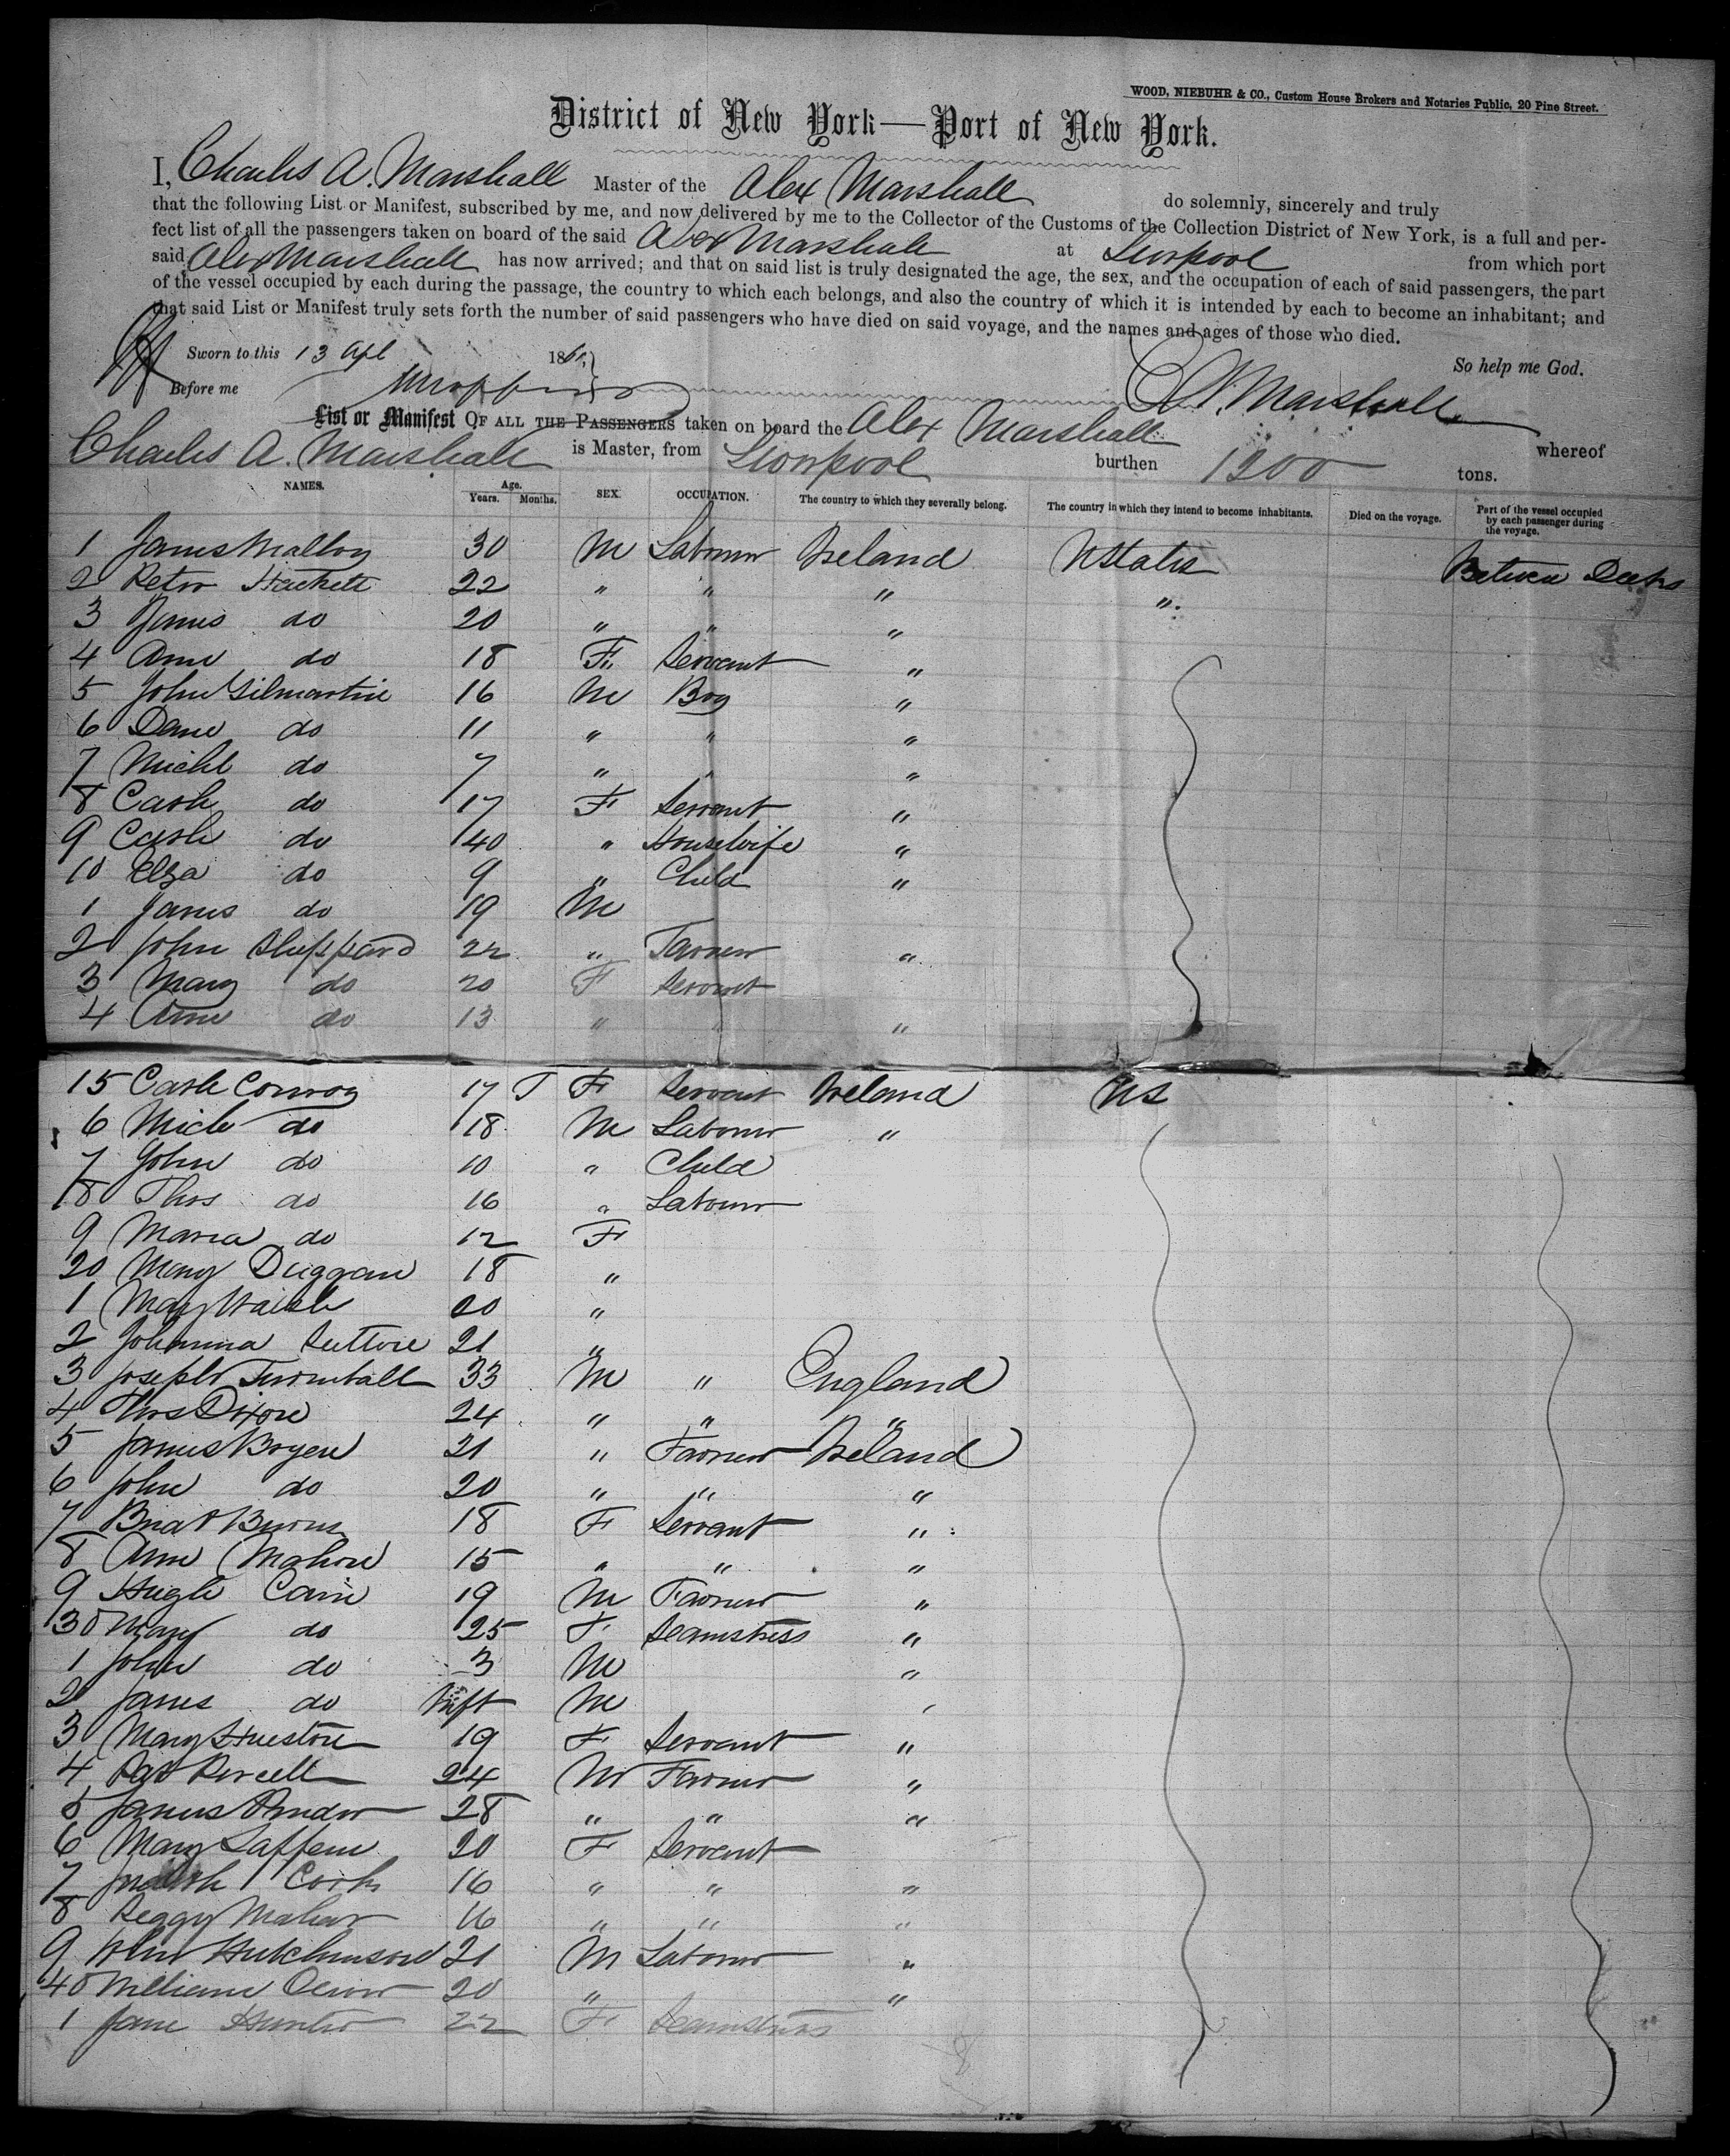 WOOD, NIEBUHR & CO., Custom House Brokers and Notaries Public, 20 Pine Street.
District of New York—Port of New York.
I, Charles A. Marshall Master of the Alex Marshall do solemnly, sincerely and truly
that the following List or Manifest, subscribed by me, and now delivered by me to the Collector of the Customs of the Collection District of New York, is a full and per-
fect list of all the passengers taken on board of the said Alex Marshall at Liverpool from which port
said Alex Marshall has now arrived; and that on said list is truly designated the age, the sex, and the occupation of each of said passengers, the part
of the vessel occupied by each during the passage, the country to which each belongs, and also the country of which it is intended by each to become an inhabitant; and
that said List or Manifest truly sets forth the number of said passengers who have died on said voyage, and the names and ages of those who died.
Sworn to this 13 Apl 186 So help me God.
Before me C A Marshall
List or Manifest OF ALL THE PASSENGERS taken on board the Alex Marshall whereof
Charles A. Marshall is Master, from Liverpool burthen 1200 tons.
NAMES. Age. Years. Months. SEX. OCCUPATION. The country to which they severally belong. The country in which they intend to become inhabitants. Died on the voyage. Part of the vessel occupied by each passenger during the voyage.
1 James Malloy 30 M Labourer Ireland U States Between Decks
2 Peter Hackett 22 " " " "
3 James do 20 " " "
4 Ann do 18 F Servant "
5 John Gilmartin 16 M Boy "
6 do 11 " " "
7 Michl do 7 " " "
8 Cath do 17 F Servant "
9 Cath do 40 " Housewife "
10 Elza do 9 " Child "
1 James do 19 M
2 John Sheppard 22 " Farmer "
3 Mary do 20 F Servant
4 Ann do 13 " " "
15 Cath Conroy 17 F Servant Ireland US
6 Mich do 18 M Labourer "
7 John do 10 " Child
18 Thos do 16 " Labourer
9 Maria do 12 F
20 Mary Duggan 18 "
1 Mary Walsh 20 "
2 Johanna 21 "
3 Joseph Turnball 33 M " England
4 Thos Dixon 24 " " "
5 James Bryen 21 " Farmer Ireland
6 John do 20 " " "
7 Bridt Burns 18 F Servant "
8 Ann Mahon 15 " " "
9 Hugh Cain 19 M Farmer "
30 Mary do 25 F Seamstress "
1 John do 3 M "
2 James do Inft M "
3 Mary Hueston 19 F Servant "
4 Pat Purcell 24 M Farmer "
5 James 28 " " "
6 Mary Laffen 20 F Servant
7 Cook 16 " " "
8 Peggy Maher 16 " " "
9 John Hutchinson 21 M Labourer "
40 William 20 " "
1 Jane Hunter 22 F Seamstress